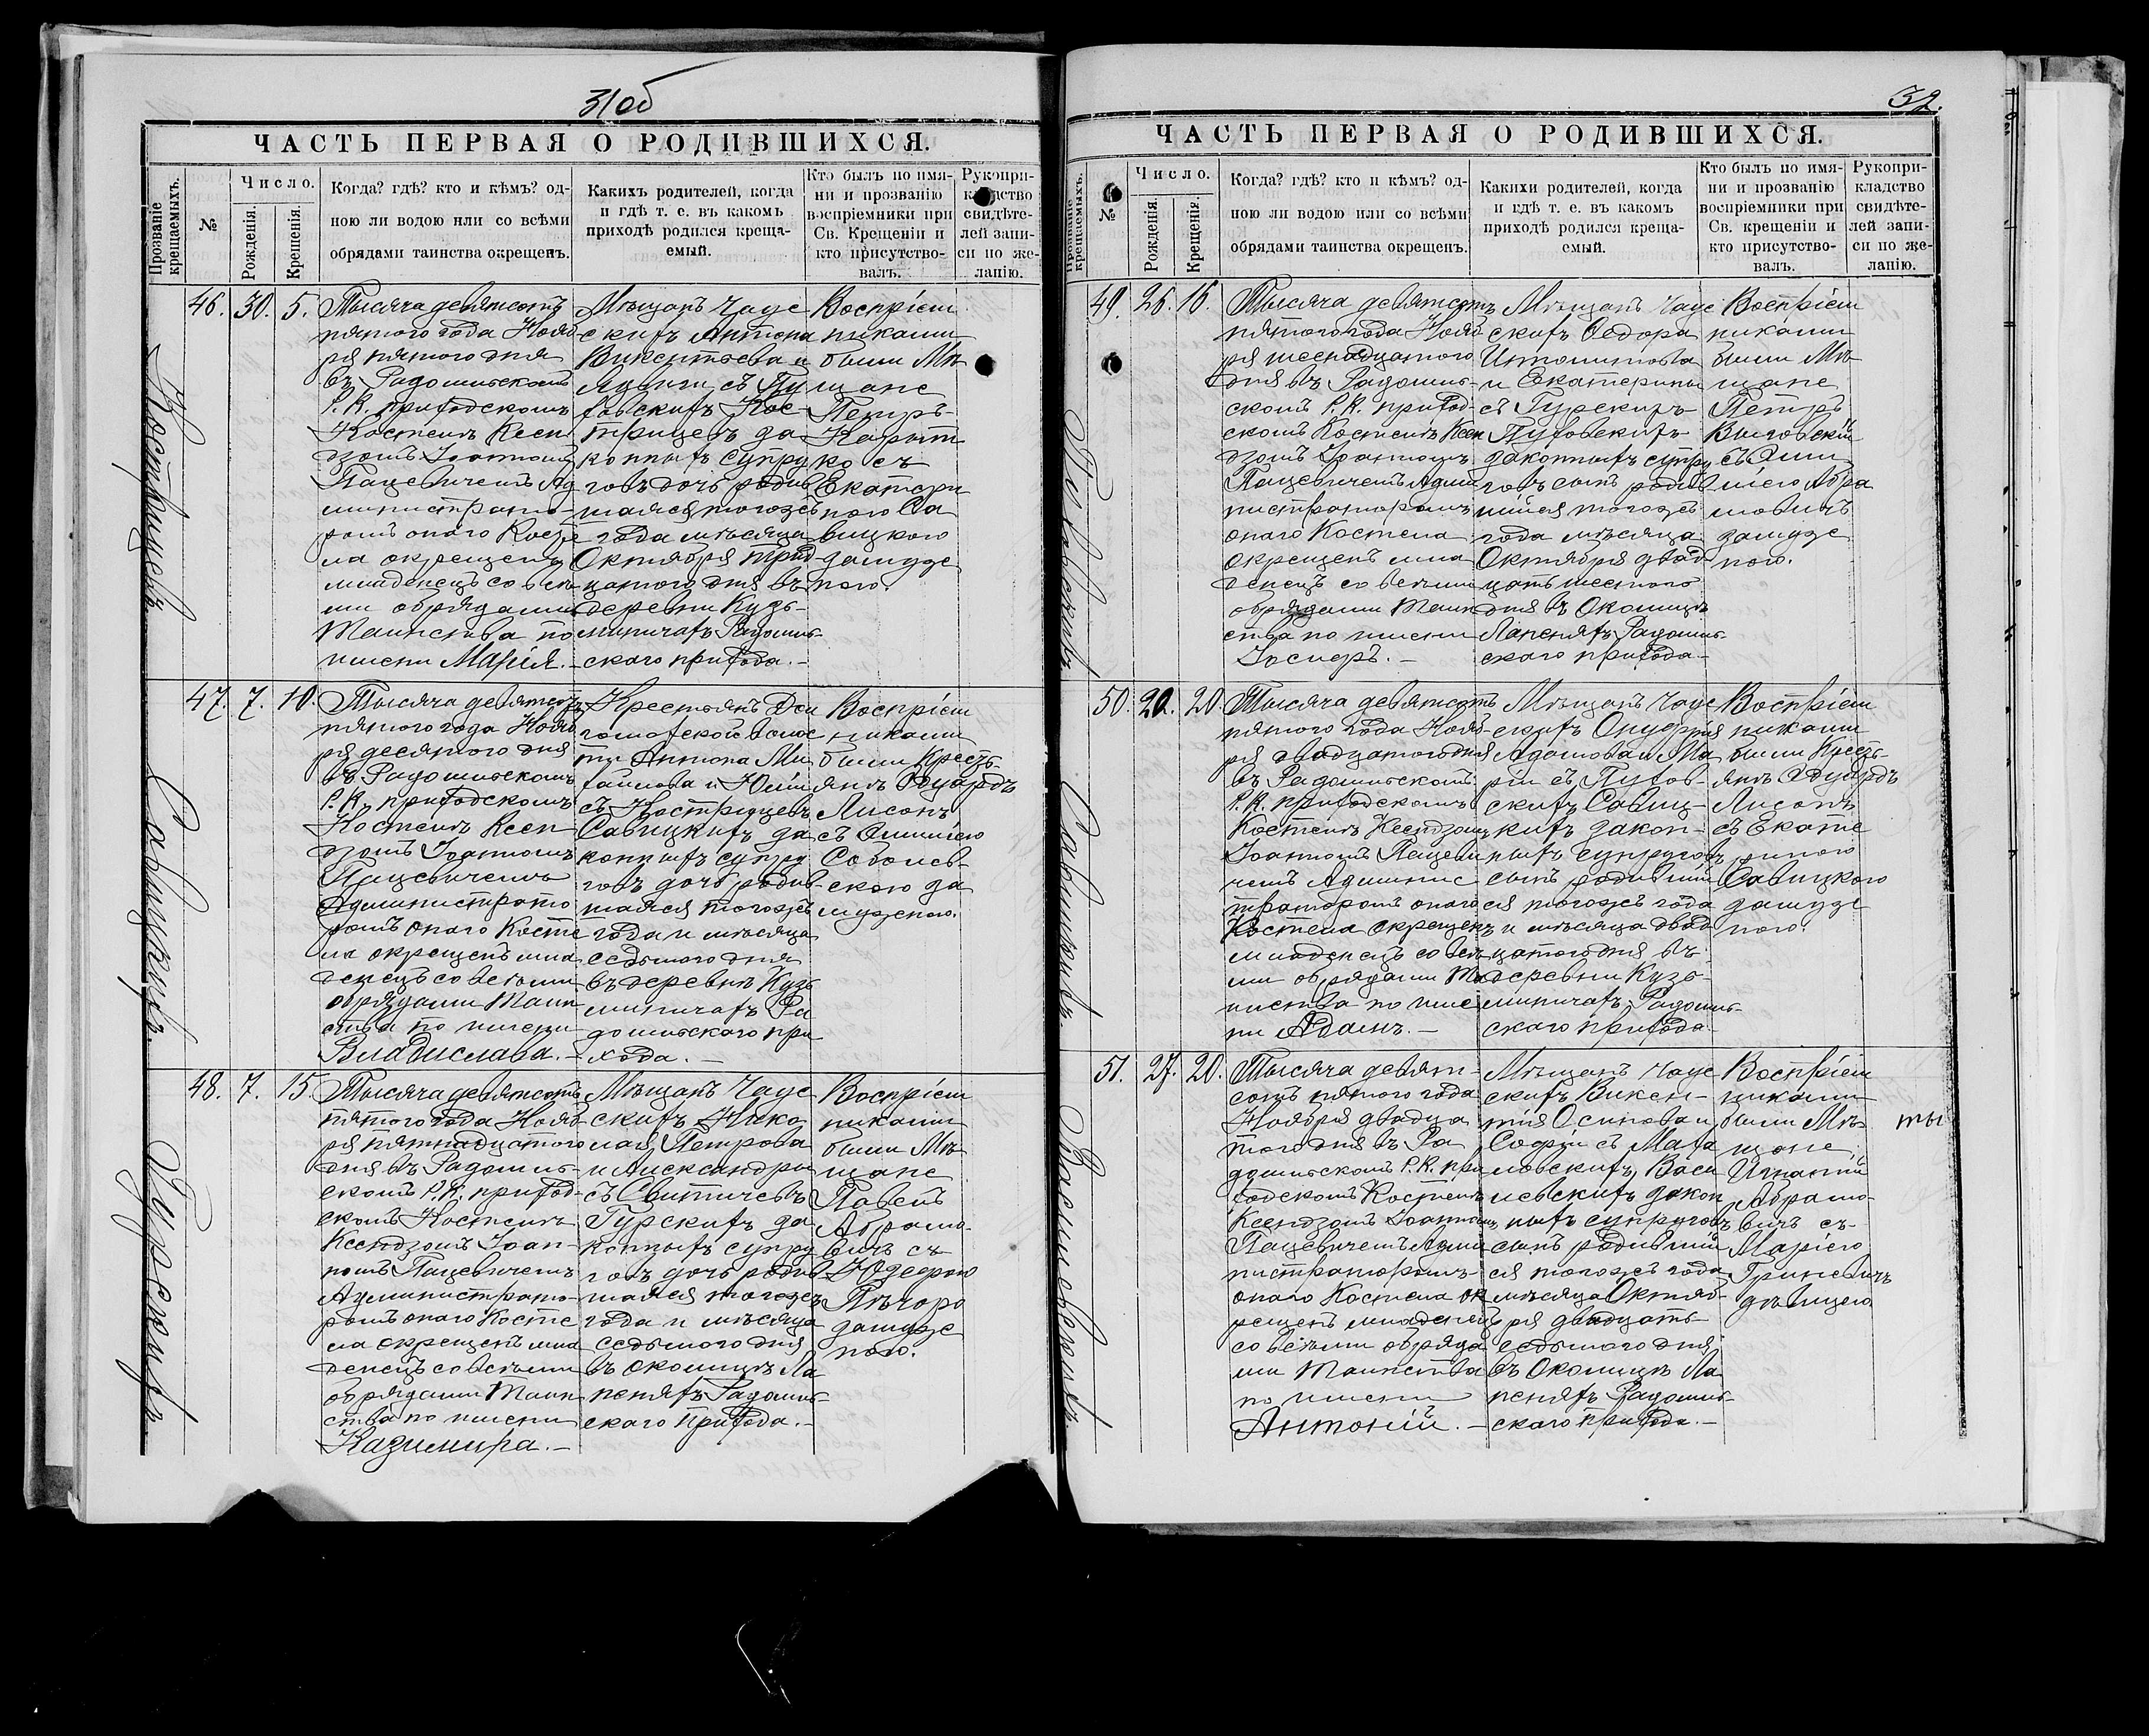 31об
ЧАСТЬ ПЕРВАЯ О РОДИВШИХСЯ.
Прозваніе крещаемыхъ.
№
Число.
Рожденія.
Крещенія.
Когда? гдѣ? кто и кѣмъ? од-
ною ли водою или со всѣми
обрядами таинства окрещенъ.
Какихъ родителей, когда
и гдѣ т. е. въ какомъ
приходѣ родился креща-
емый.
Кто былъ по имя-
ни и прозванію
воспріемники при
Св. Крещеніи и
кто присутство-
валъ.
Рукопри-
кладство
свидѣте-
лей запи-
си по же-
ланію.
Кострицевъ
46. 30. 5.
Тысяча девятьсотъ
пятого года Нояб
ря пятого дня
въ Радошльскомъ
Р. К. приходскомъ
Костелѣ Ксен
дзомъ Іоанномъ
Пацевичемъ Ад
министрато-
ромъ онаго Косте
ла окрещенъ
младенецъ со всѣ
ми обрядами
Таинства по
имени Марія.-
Мѣщанъ Чаус
скихъ Антона
Викентьева и
ховскихъ Кос-
трицевъ за
конныхъ супру
говъ дочь родив
шаяся тогожъ
года мѣсяца
Октября трид
цатого дня въ
деревни Кузь-
миничахъ Радошль-
скаго прихода.-
Воспріем
никами
были Мѣ
щане
Петръ
ко съ
Екатери
ною Са
вицкою
замуже
ною.
Савицкихъ.
47. 7. 10.
Тысяча девятьсотъ
пятого года Нояб
ря десятого дня
въ Радошльскомъ
Р. К. приходскомъ
Костелѣ Ксен
дзомъ Іоанномъ
Пацевичемъ
Администрато
ромъ онаго Косте
ла окрещенъ мла
денецъ со всѣми
обрядами Таин
ства по имени
Владислава.-
Крестьянъ Дом
ти Антона Ми
хайлова и Юліи
съ Костріцевъ
Савицкихъ за
конныхъ супру
говъ дочь родив-
шаяся тогожъ
года и мѣсяца
седьмого дня
въ деревнѣ Кузь
миничахъ Ра
дошльскаго при
хода.-
Воспріем
никами
были Кресть
янъ Эдуардъ
Лисонъ
съ Эмиліею
Соболев-
скою за
мужною.
Гурскихъ.
48. 7. 15.
Тысяча девятьсотъ
пятого года Нояб
ря пятнадцатого
дня въ Радошль-
скомъ Р. К. приход-
скомъ Костелѣ
Ксендзомъ Іоан-
номъ Пацевичемъ
Администрато-
ромъ онаго Косте
ла окрещенъ мла
денецъ со всѣми
обрядами Таин
ства по имени
Казимира.-
Мѣщанъ Чаус
скихъ Нико
лая Петрова
и Александры
съ Свитичевъ
Гурскихъ за
конныхъ супру
говъ дочь родив
шаяся тогожъ
года и мѣсяца
седьмого дня
въ околицѣ Ла
пеняхъ Радошль-
скаго прихода.-
Воспріем
никами
были Мѣ
щане
Павелъ
Абрамо-
вичъ съ
Юзефою
замуже
ною.
32.
ЧАСТЬ ПЕРВАЯ О РОДИВШИХСЯ.
Прозваніе крещаемыхъ.
№
Число.
Рожденія.
Крещенія.
Когда? гдѣ? кто и кѣмъ? од-
ною ли водою или со всѣми
обрядами таинства окрещенъ.
Какихи родителей, когда
и гдѣ т. е. въ какомъ
приходѣ родился креща-
емый.
Кто былъ по имя-
ни и прозванію
воспріемники при
Св. крещеніи и
кто присутство-
валъ.
Рукопри-
кладство
свидѣте-
лей запи-
си по же-
ланію.
Пуховскихъ
49. 26. 16.
Тысяча девятьсотъ
пятого года Нояб
ря шестнадцатого
дня въ Радошль-
скомъ Р. К. приход-
скомъ Костелѣ Ксен
дзомъ Іоанномъ
Пацевичемъ Адми
нистраторомъ
онаго Костела
окрещенъ мла
денецъ со всѣми
обрядами Таин
ства по имени
Іосифъ.-
Мѣщанъ Чаус
скихъ Ѳедора
и Екатерины
съ Гурскихъ
Пуховскихъ
законныхъ супру
говъ сынъ родив
шійся тогожъ
года мѣсяца
Октября двад
цать шестого
дня въ Околицѣ
Лапеняхъ Радошль-
скаго прихода-
Воспріем
никами
были Мѣ
щане
Петръ
съ Эми
ліею Абра
мовичъ
замуже
ною.
Савицкихъ.
50. 20. 20.
Тысяча девятьсотъ
пятого года Нояб-
ря двадцатого дня
въ Радошльскомъ
Р. К. приходскомъ
Костелѣ Ксендзомъ
Іоанномъ Пацеви
чемъ Админис
траторомъ онаго
Костела окрещенъ
младенецъ со всѣ
ми обрядами Та
инства по име
ни Адамъ.-
Мѣщанъ Чаус
скихъ Онуфрія
Адамова и Ма
ріи съ Пухов-
скихъ Савиц-
кихъ закон-
ныхъ супруговъ
сынъ родивший
ся тогожъ года
и мѣсяца двад
цатого дня въ
деревни Кузь-
миничахъ Радошль-
скаго прихода-
Воспріем
никами
были Кресть-
янъ Эдуардъ
Лисонъ
съ Екате
риною
Савицкою
замуже
ною.
Василевскихъ.
51. 27. 20.
Тысяча девять-
сотъ пятого года
Ноября двадца
того дня въ Ра
дошльскомъ Р. К. при
ходскомъ Костелѣ
Ксендзомъ Іоанномъ
Пацевичемъ Адми
нистраторомъ
онаго Костела ок
рещенъ младенецъ
со всѣми обряда
ми Таинства
по имени
Антоній.-
Мѣщанъ Чаус
скихъ Викен-
тія Осипова и
Софіи съ Мала
ховскихъ Васи
левскихъ закон
ныхъ супруговъ
сынъ родивший
ся тогожъ года
мѣсяца Октяб-
ря двадцать
седьмого дня
въ Околицѣ Ла
пеняхъ Радошль-
скаго прихода.-
Воспріем
никами
были Мѣ-
щане
Игнатій
Абрамо-
вичъ съ
Маріею
Гриневичъ
дѣвицею.
ты